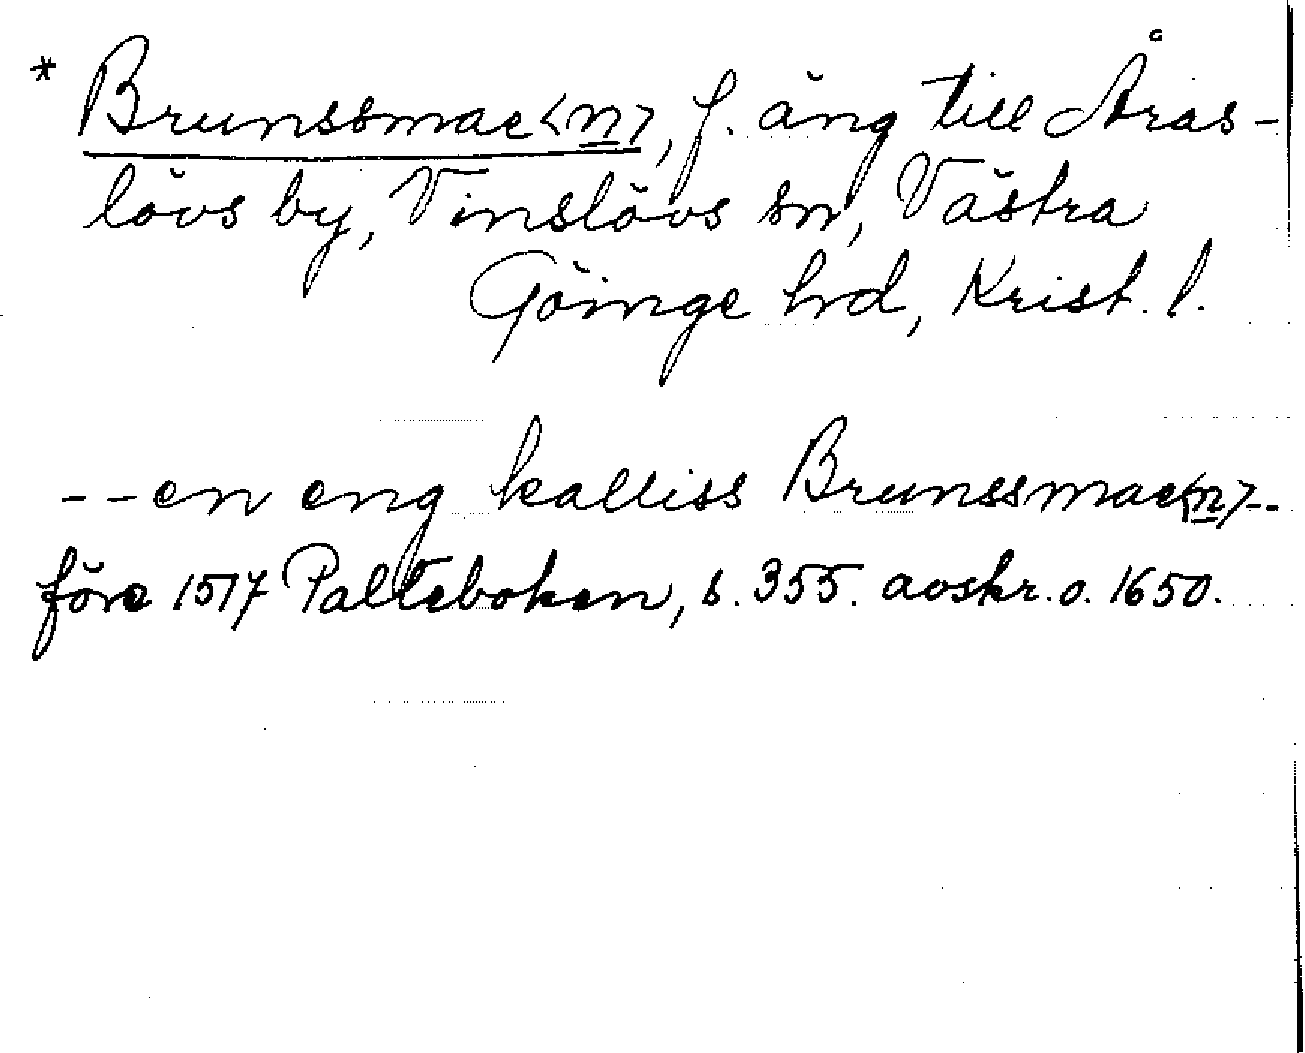 * Brunssmae<n>, f. äng till Åras-
lövs by, Vinslövs sn, Västra
Göinge hrd, Krist. l.
--en eng kalliss Brunssmae<n>--
före 1517 Palteboken, s. 355. avskr. o. 1650.